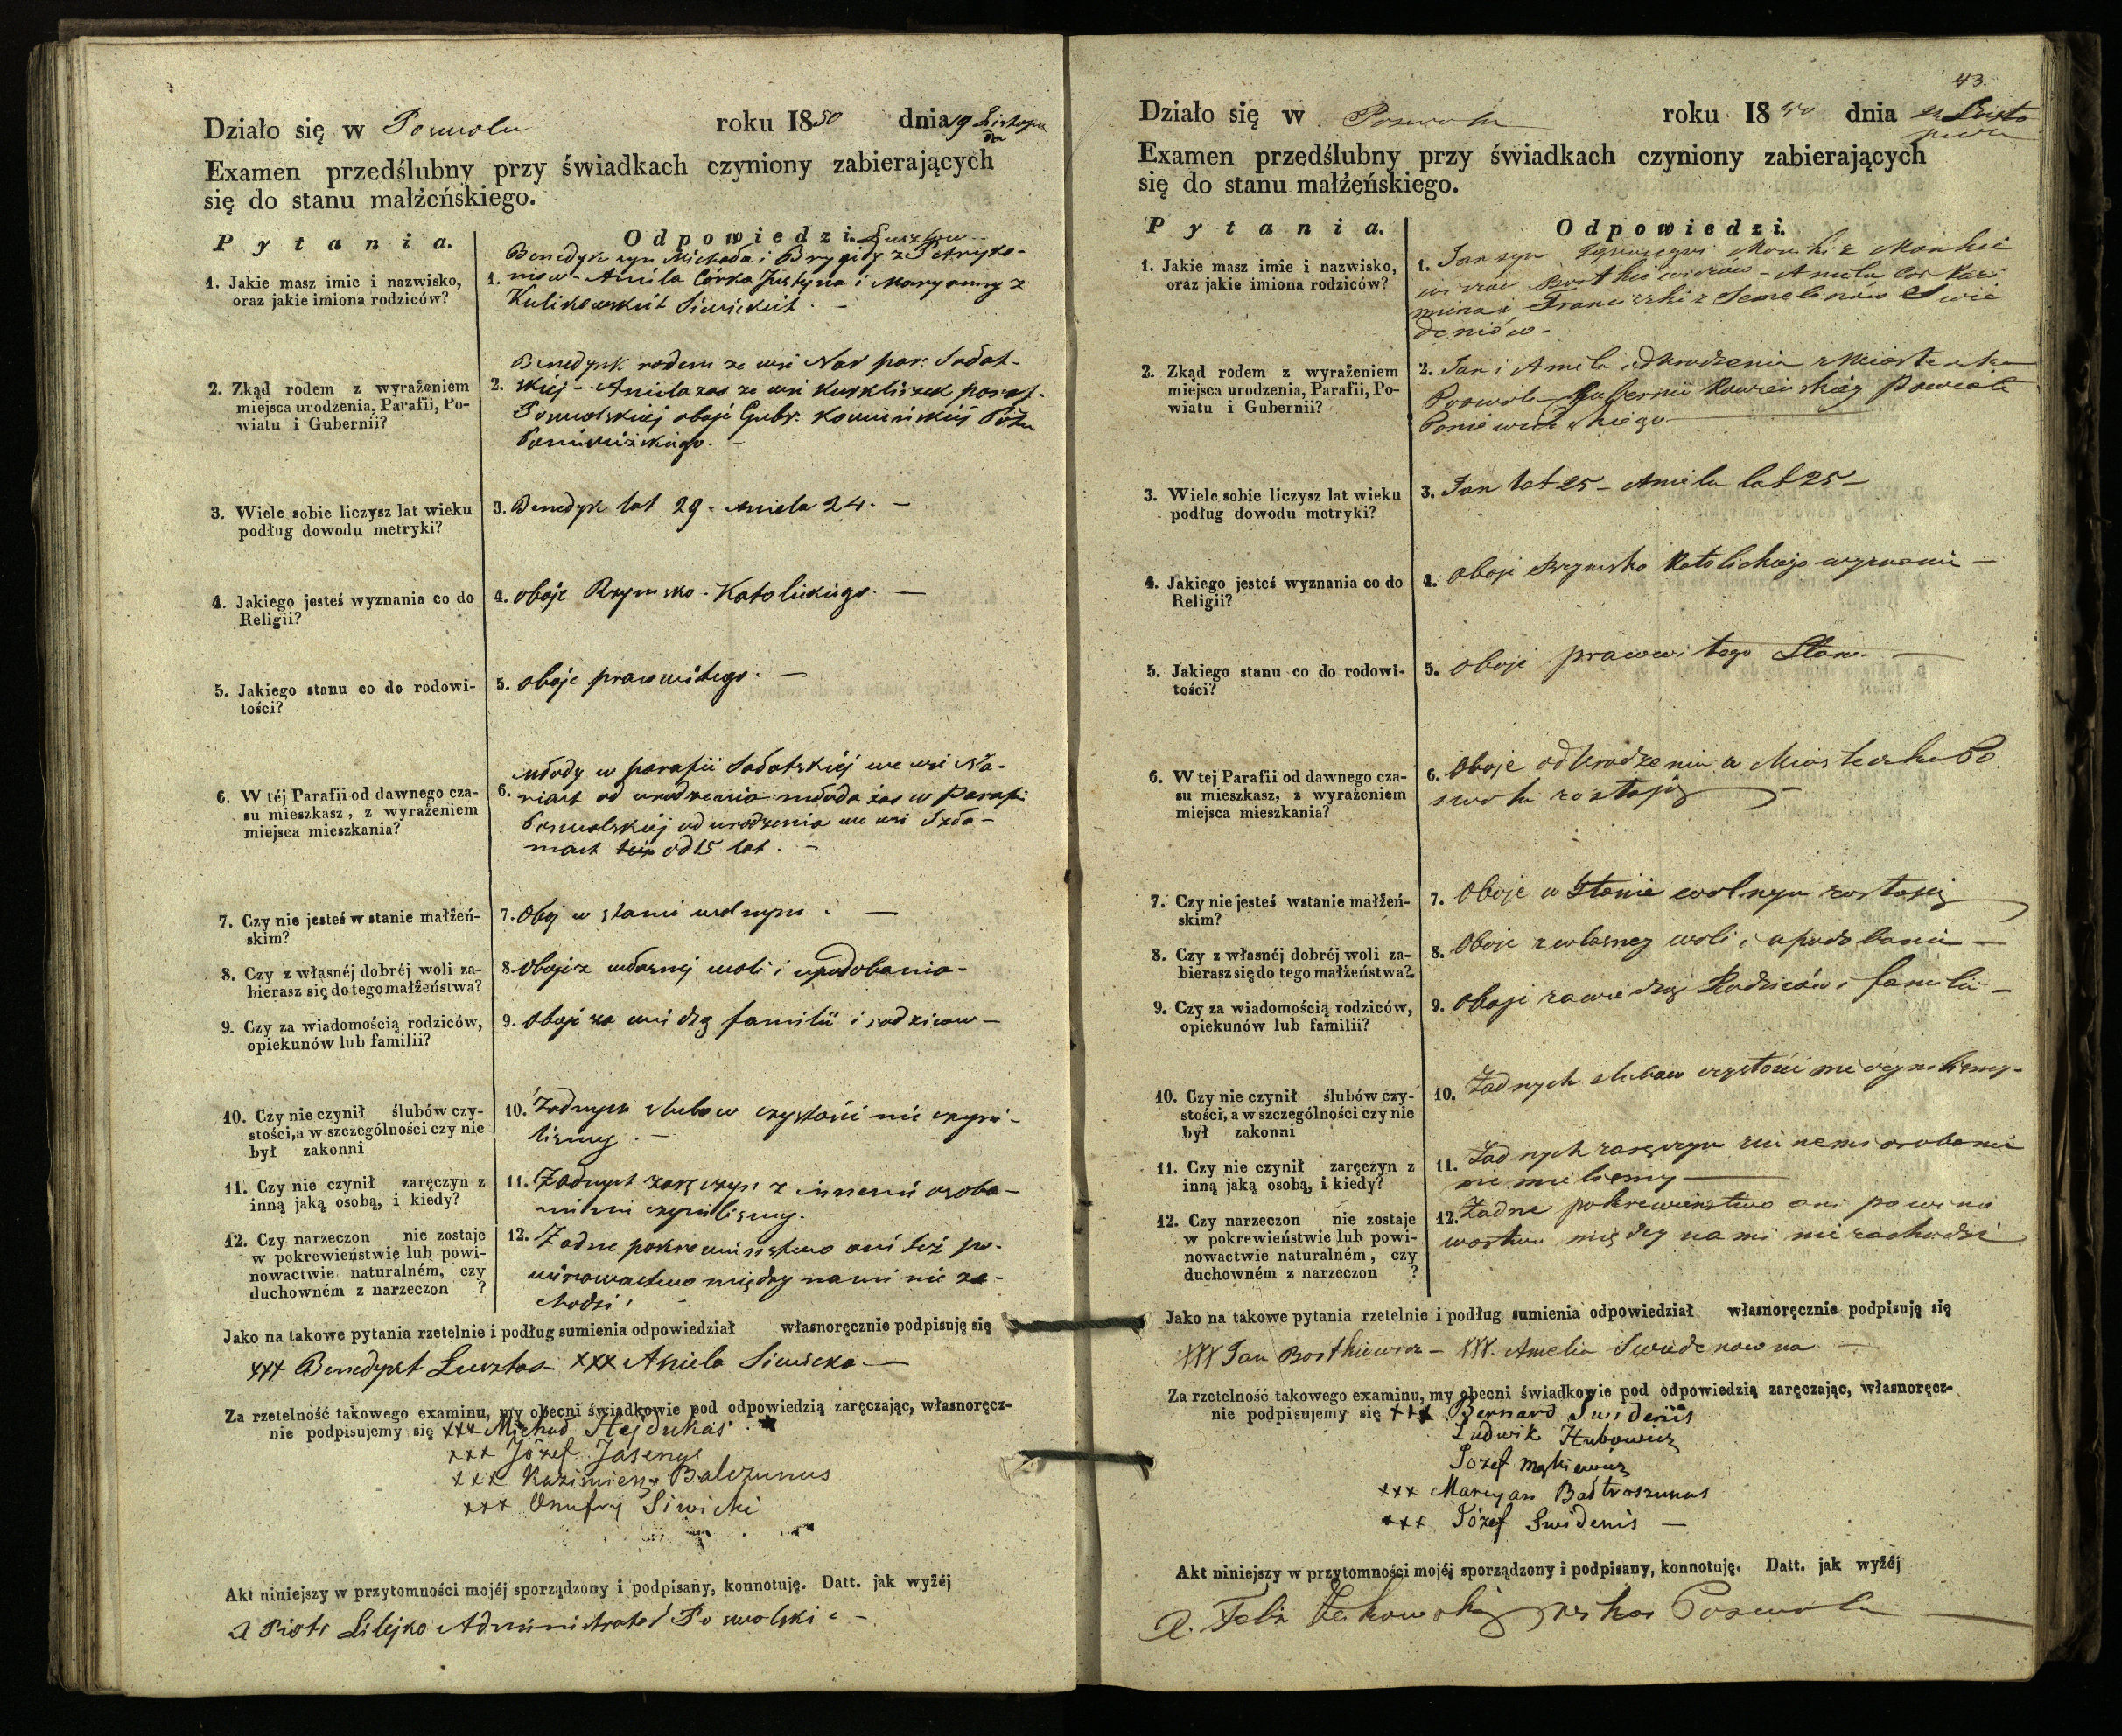 Działo się w Poswolu roku 1850 dnia 19 Listopa
da
Examen przedślubny przy świadkach czyniony zabierających
się do stanu małżeńskiego.
Pytania.
Odpowiedzi.
1. Jakie masz imie i nazwisko,
oraz jakie imiona rodziców?
Benedyk syn Michała i Brygidy z
1. Aniela Córka Justyna i Maryanny z
2. Zkąd rodem z wyrażeniem
miejsca urodzenia, Parafii, Po-
wiatu i Gubernii?
Benedykt rodem ze wsi par:
2. Aniela zas ze wsi paraf.
Poswolskiej oboje Gubr: Kowieńskiej
3. Wiele sobie liczysz lat wieku
podług dowodu metryki?
3. Benedyk lat 29 - Aniela 24. -
4. Jakiego jesteś wyznania co do
Religii?
4. oboje Rzymsko-Katolickiego. -
5. Jakiego stanu co do rodowi-
tości?
5. oboje prawowitego. -
6. W téj Parafii od dawnego cza-
su mieszkasz, z wyrażeniem
miejsca mieszkania?
młody w parafii we wsi Na-
6. riach od urodzenia młoda zas w Parafii
Poswolskiej od urodzenia we wsi
od 15 lat. -
7. Czy nie jesteś w stanie małżeń-
skim?
7. Oboj w stanie wolnym. -
8. Czy z własnéj dobréj woli za-
bierasz się do tego małżeństwa?
8. Oboje z własnej woli i upodobania -
9. Czy za wiadomością rodziców,
opiekunów lub familii?
9. Oboje za familii i rodzicow -
10. Czy nie czynił ślubów czy-
stości, a w szczególności czy nie
był zakonni
10. Żadnych slubow czystości nie czyni-
lismy. -
11. Czy nie czynił zaręczyn z
inną jaką osobą, i kiedy?
11. Żadnych zaręczyn z innemi osoba-
mi ni czynilismy.
12. Czy narzeczon nie zostaje
w pokrewieństwie lub powi-
nowactwie naturalném, czy
duchowném z narzeczon ?
12. Żadne pokrewieństwo ani też po-
winowactwo między nami nie za-
chodzi
Jako na takowe pytania rzetelnie i podług sumienia odpowiedział własnoręcznie podpisuję się
xxx Benedykt Lusztas - xxx Aniela Siwicka -
Za rzetelność takowego examinu, my obecni świadkowie pod odpowiedzią zaręczając, własnoręcz-
nie podpisujemy się xxx Michał Hejdukas
xxx Józef
xxx Kazimierz Balczunus
xxx Onufry Siwicki
Akt niniejszy w przytomności mojéj sporządzony i podpisany, konnotuję. Datt. jak wyżéj
X Piotr Lilejko Administrator Poswolski -
43.
Działo się w Poswolu roku 18 dnia Listo
pada
Examen przedślubny przy świadkach czyniony zabierających
się do stanu małżeńskiego.
Pytania.
Odpowiedzi.
1. Jakie masz imie i nazwisko,
oraz jakie imiona rodziców?
1. Jan syn
Amelia Kazi
mirza i Franciszki z
2. Zkąd rodem z wyrażeniem
miejsca urodzenia, Parafii, Po-
wiatu i Gubernii?
2. Jan i Amelia od urodzenia z Miasteczka
Poswola Gubernii Kowieńskiej Powiatu
Poniewieskiego -
3. Wiele sobie liczysz lat wieku
podług dowodu metryki?
3. Jan lat 25 - Amelia lat 25 -
4. Jakiego jesteś wyznania co do
Religii?
4. Oboje Rzymsko Katolickiego wyznania -
5. Jakiego stanu co do rodowi-
tości?
5. Oboje prawowitego Stanu. -
6. W tej Parafii od dawnego cza-
su mieszkasz, z wyrażeniem
miejsca mieszkania?
6. Oboje od urodzenia w Miasteczku Po
swolu zostają -
7. Czy nie jesteś w stanie małżeń-
skim?
7. Oboje w Stanie wolnym zostają
8. Czy z własnéj dobréj woli za-
bierasz się do tego małżeństwa?
8. Oboje z własnej woli i upodobania -
9. Czy za wiadomością rodziców,
opiekunów lub familii?
9. Oboje za wiedzą Rodziców i familii -
10. Czy nie czynił ślubów czy-
stości, a w szczególności czy nie
był zakonni
10. Żadnych slubow czystości nie czynilismy -
11. Czy nie czynił zaręczyn z
inną jaką osobą, i kiedy?
11. Żadnych zaręczyn osobami
nie mielismy -
12. Czy narzeczon nie zostaje
w pokrewieństwie lub powi-
nowactwie naturalném, czy
duchowném z narzeczon ?
12. Żadne pokrewieństwo ani powino
wactwo między nami nie zachodzi
Jako na takowe pytania rzetelnie i podług sumienia odpowiedział własnoręcznie podpisuję się
XXX Jan Bostkiewicz - XXX. Amelia -
Za rzetelność takowego examinu, my obecni świadkowie pod odpowiedzią zaręczając, własnoręcz-
nie podpisujemy się xxx Bernard Swidenis
Ludwik
Józef
xxx Maryan
xxx Józef Swidenis -
Akt niniejszy w przytomności mojéj sporządzony i podpisany, konnotuję. Datt. jak wyżéj
X. Felix